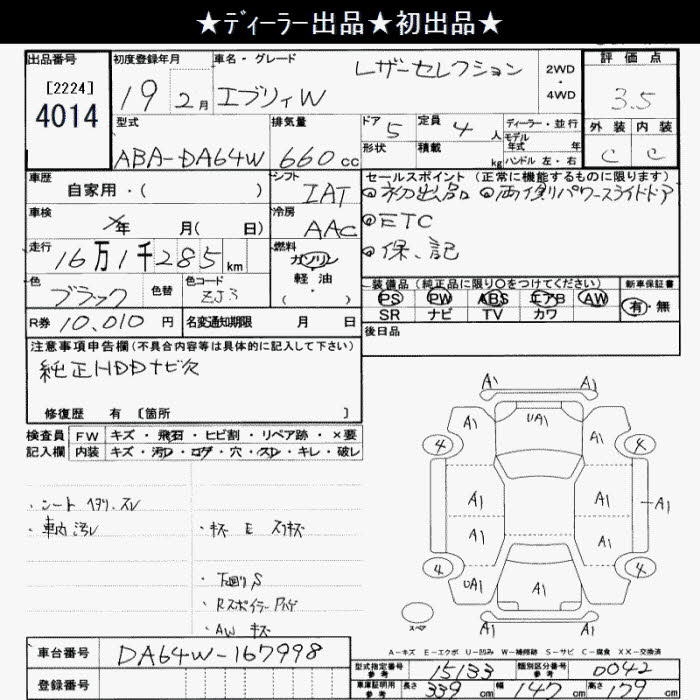 ★ディーラー出品★初出品★
出品番号
[2224]
4014
初度登録年月
19 2月
車名・グレード
レザーセレクション
エブリィW
2WD
・
4WD
評価点
3.5
外装 内装
C C
型式
ABA-DA64W
排気量
660cc
ドア 5
形状
定員 4人
積載 kg
ディーラー・並行
モデル年式 年
ハンドル 左・右
車歴
自家用・( )
シフト
IAT
セールスポイント (正常に機能するものに限ります)
◎初出品 ◎両側パワースライドドア
◎ETC
◎保、記
車検
年 月( 日)
冷房
AAC
走行
16万1千285km
燃料
ガソリン
軽油
( )
色
ブラック
色替
色コード
ZJ3
装備品 (純正品に限り〇をつけてください)
PS PW ABS エアB AW
SR ナビ TV カワ
新車保証書
有・無
R券 10,010 円
名変通知期限 月 日
後日品
注意事項申告欄 (不具合内容等は具体的に記入して下さい)
純正HDDナビ欠
修復歴 有 [箇所 ]
検査員
記入欄
FW キズ・飛石・ヒビ割・リペア跡・×要
内装 キズ・汚レ・コゲ・穴・スレ・キレ・破レ
・シート ヘタリ、スレ
・車内汚レ
・キズ E スリキズ
・下廻りS
・Rスポイラー
・AW キズ
A1 A1
A1 UA1 A1
4 4
A1 A1 A1
A1 A1
4 4
UA1 A1 A1
A1 A1
スペア
A-キズ E-エクボ U-凹み W-補修跡 S-サビ C-腐食 XX-交換済
車台番号 DA64W-167998
登録番号
型式指定番号 参考 15133
類別区分番号 参考 0042
車庫証明用 参考 長さ 339 cm 幅 147 cm 高さ 179 cm